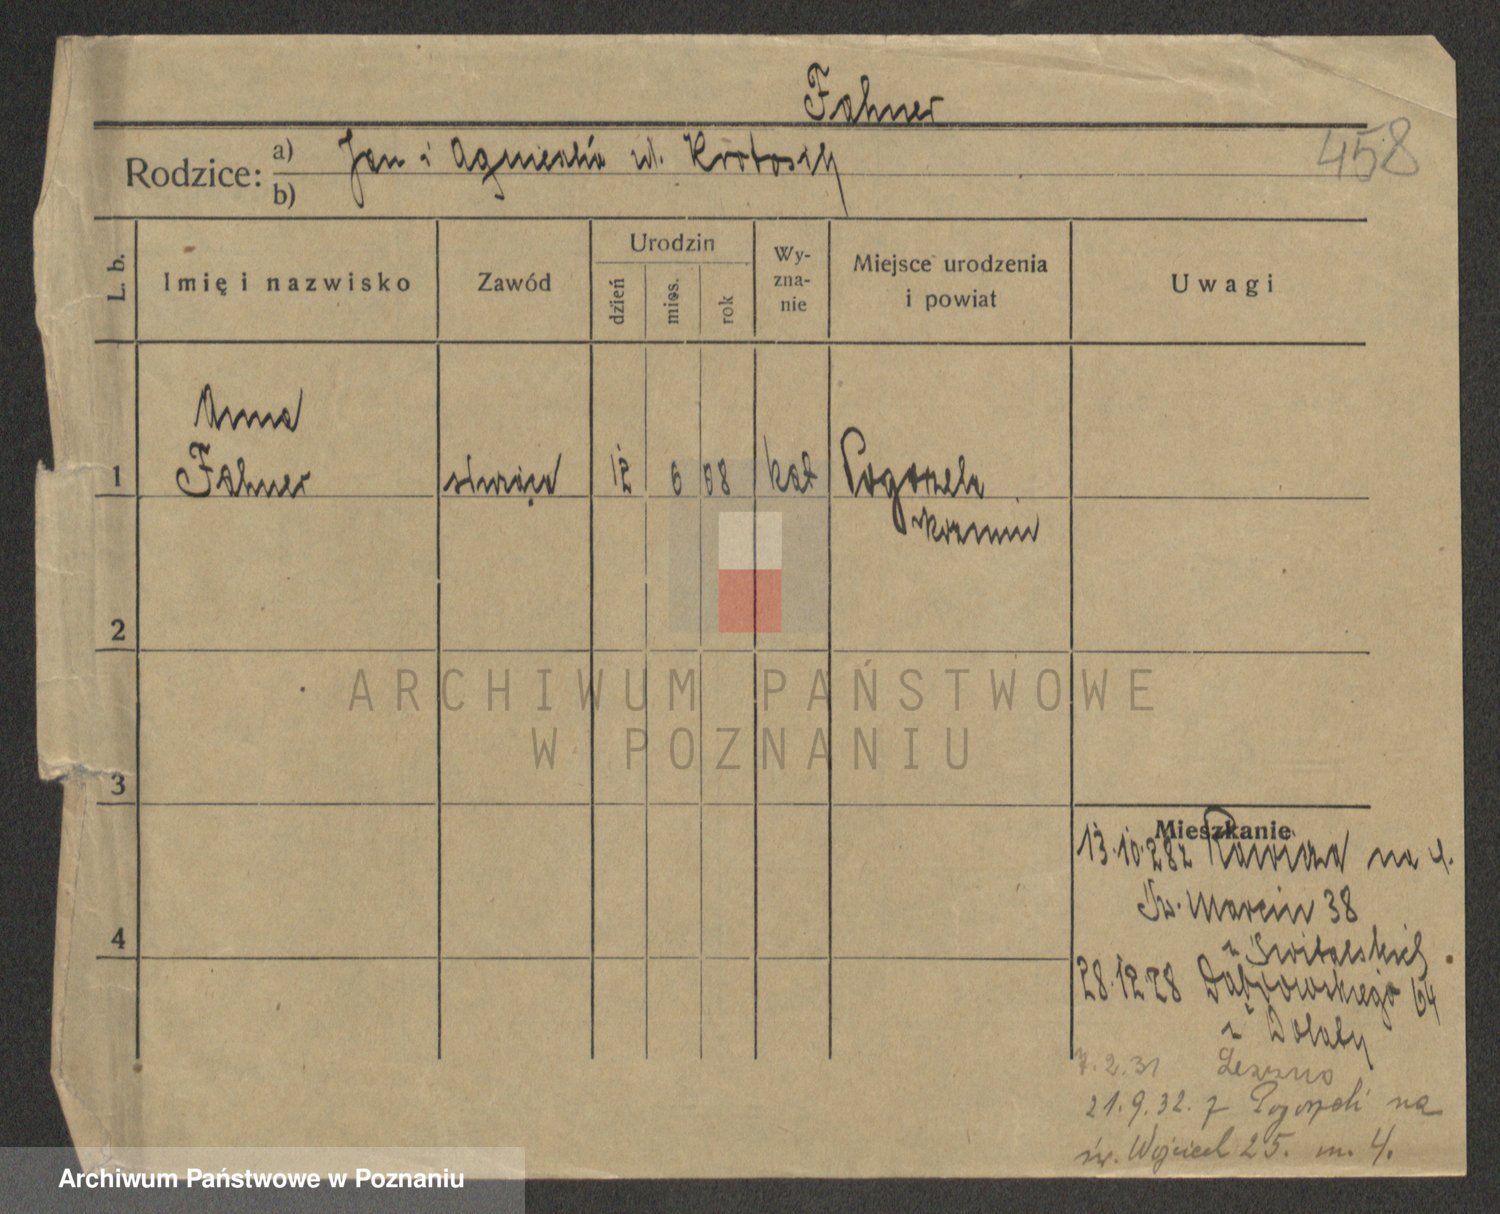 Fahner
458
Rodzice: a) Jan i Agnieszka ur. Krotosch
b)
L. b.
Imię i nazwisko
Zawód
Urodzin
dzień
mies.
rok
Wy-
zna-
nie
Miejsce urodzenia
i powiat
Uwagi
Anna
1 Fahner służąca 12 6 08 kat Pogorzela
Koźmin
2
ARCHIWUM PAŃSTWOWE
W POZNANIU
3
Mieszkanie
13.10.28 z Rawicza na ul.
Św. Marcin 38
u Switalskich
4
28.12.28 Dąbrowskiego 64
u Dolaty
7.2.31 Leszno
21.9.32. z Pogorzeli na
św. Wojciech 25. m. 4.
Archiwum Państwowe w Poznaniu